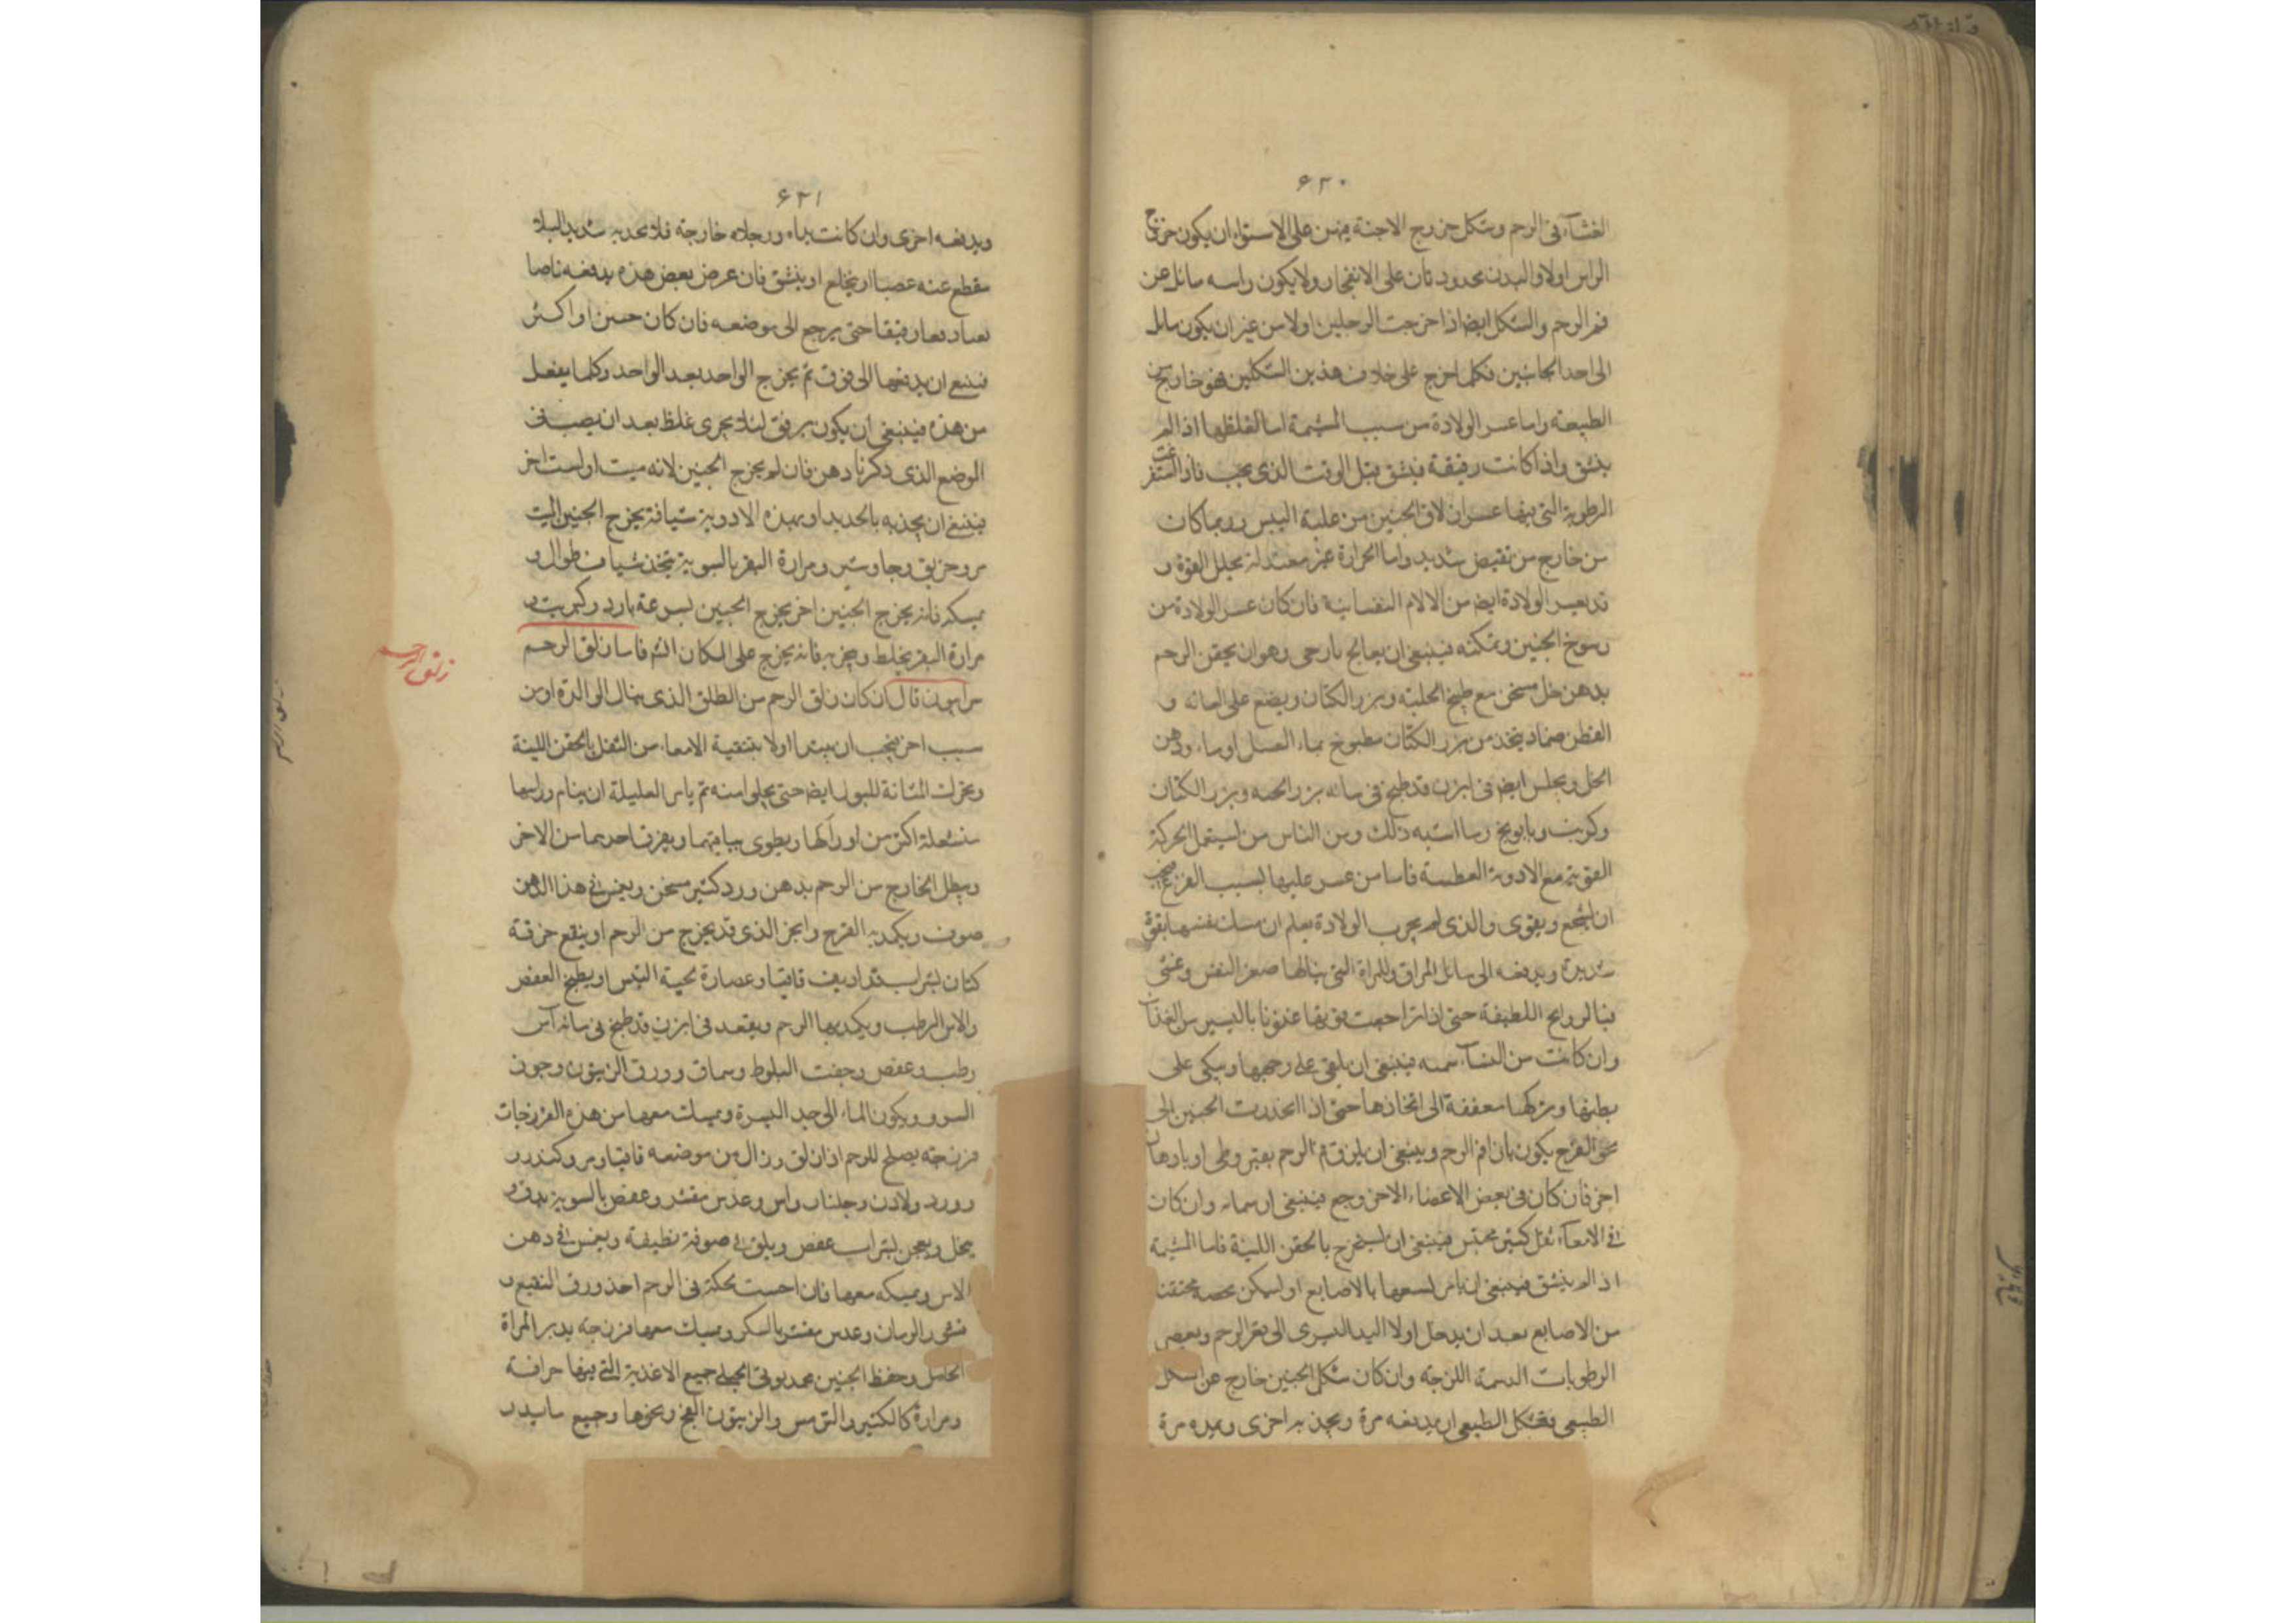 ٦٣٠
الغشاء فى الرحم وشكل خروج الاجنة فيهن على الاستواء ان يكون خروج
الراس اولا واليدين ممدودتان على الانفخار ولا يكون راسه مائل عن
فم الرحم والشكل ايضا اذا خرجت الرجلين اولا من غير ان يكون مائل
الى احد الجانبين فكلما خرج على خلاف هذين الشكلين فهو خارج عن
الطبيعة واما عسر الولادة من سبب المشيمة اما لغلظها اذا لم
ينشق واذا كانت رقيقة فينشق قبل الوقت الذى يجب فاذا استفرغت
الرطوبة التى فيها عسر انزلاق الجنين من غلبة اليبس وربما كان
من خارج من تقبض شديد واما الحرارة غير معتدلة يحلل القوة و
قد يعسر الولادة ايضا من الالام النفسانية فان كان عسر الولادة من
رسوخ الجنين وتمكنه فينبغى ان يعالج بارخى وهو ان يحقن الرحم
بدهن خل مسخن مع طبيخ الحلبة وبزر الكتان ويضع على العانة و
القطن ضماد يتخذ من بزر الكتان مطبوخ بماء العسل او ماء ودهن
الخل ويجلس ايضا فى ابزن قد طبخ فى مائه بزر الحلبة وبزر الكتان
وكرنب وبابونج وما اشبه ذلك ومن الناس من استعمل الحركة
القوية مع الادوية المعطسة فاما من عسر عليها بسبب الفزع فيجب
ان تشجع ويقوى والذى لم يجرب الولادة يعلم ان تمسك نفسها بقوة
شديدة ويدفعه الى مائل المراق والمراة التى ينالها صغر النفس وغشى
فبالروايح اللطيفة حتى اذا تراجعت قويها عذونا باليسير من الغذاء
وان كانت من النساء سمينة فينبغى ان يلقى على وجهها ويتكى على
بطنها وتركها معقفة الى افخاذها حتى اذا انحدرت الجنين الى
نحو الفرج يكون بازا فم الرحم وينبغى ان يلزق فم الرحم بقيروطى او بادهان
اخر فان كان فى بعض الاعضاء الاخر وجع فينبغى وان كان
فى الامعاء ثفل كثير محتبس فينبغى ان يستخرج بالحقن اللينة فاما المشيمة
اذا لم ينشق فينبغى ان بالاصابع او
من الاصابع بعد ان يدخل اولا اليد اليسرى الى قعر الرحم
الرطوبات الدسمة اللزجة وان كان شكل الجنين خارج عن الشكل
الطبيعى فشكل الطبيعى ان يدفعه مرة ويجذبه اخرى ويمده مرة
٦٣١
ويدفعه اخرى وان كانت يداه ورجلاه خارجة فلا يجذبه شديدا لئلا
ينقطع عنه عصبا او ينخلع او ينشق فان عرض بعض هذه يدفعه ناصا
يعاد رفيقا حتى يرجع الى موضعه فان كان جنين او اكثر
فينبغى ان يدفعها الى فوق ثم يخرج الواحد بعد الواحد وكلما يفعل
من هذه فينبغى ان يكون برفق لئلا يجرى غلظ بعد ان يصب فى
الوضع الذى ذكرنا دهن فان لم يخرج الجنين لانه ميت او لسبب اخر
فينبغى ان يجذبه بالحديد او بهذه الادوية شيافة يخرج الجنين الميت
مر وخربق وجاوشير ومرارة البقر بالسوية يتخذ شياف طوال و
يمسكه فانه يخرج الجنين اخر يخرج الجنين بسرعة بارزد وكبريت و
مرارة البقر يخلط ويبخر به فانه يخرج على المكان الثم فاما زلق الرحم
زلق الرحم
سرابيون قال ان كان زلق الرحم من الطلق الذى ينال الوالدة او من
سبب اخر فيجب ان يبتدا اولا بتنقية الامعاء من الثفل بالحقن اللينة
ويحرك المثانة للبول ايضا حتى يخلوا منه ثم يامر العليلة ان ينام وراسها
منسفلة اكثر من اوراكها ويطوى ساقيها ويفرق احديهما من الاخر
ويطل الخارج من الرحم بدهن ورد كثير مسخن ويغمس فى هذا الدهن
صوف ويكمد به الفرج والجزء الذى قد يخرج من الرحم او ينقع خرقة
كتان بشراب قد اديف قاقيا وعصارة لحية التيس او يطبخ العفص
والاس الرطب ويكمد بها الرحم ويقعد فى ابزن قد طبخ فى مائه آس
رطب وعفص وجفت البلوط وسماق وورق الزيتون وجوز
السرو ويكون الماء الى حد السرة ويمسك معها من هذه الفرزجات
فرزجة يصلح للرحم اذا زلق وزال من موضعه قاقيا ومر وكندر و
وورد ولادن وجلنار واس وعدس مقشر وعفص بالسوية يدق و
ينخل ويعجن بشراب عفص ويلق فى صوفة نظيفة ويغمس فى دهن
الاس ويمسكه معها فان احست بحكة فى الرحم اخذ ورق النعنع و
قشور الرمان وعدس مقشر بالسكر ويمسك معها فرزجة يدبر المراة
الحامل وحفظ الجنين يحمد يوقى الحبلى جميع الاغذية التى فيها حرافة
ومرارة كالكبر والترمس والزيتون الفج ونحوها وجميع ما يدر